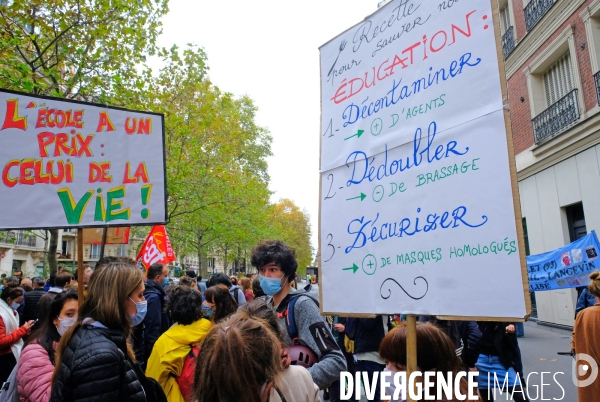 L'ÉCOLE A UN
PRIX :
CELUI DE LA
VIE !
Recette
pour sauver notre
ÉDUCATION :
1. Décontaminer
→ + D'AGENTS
2. Dédoubler
→ - DE BRASSAGE
3. Sécuriser
→ + DE MASQUES HOMOLOGUÉS
LANGEVIN
DIVERGENCE IMAGES